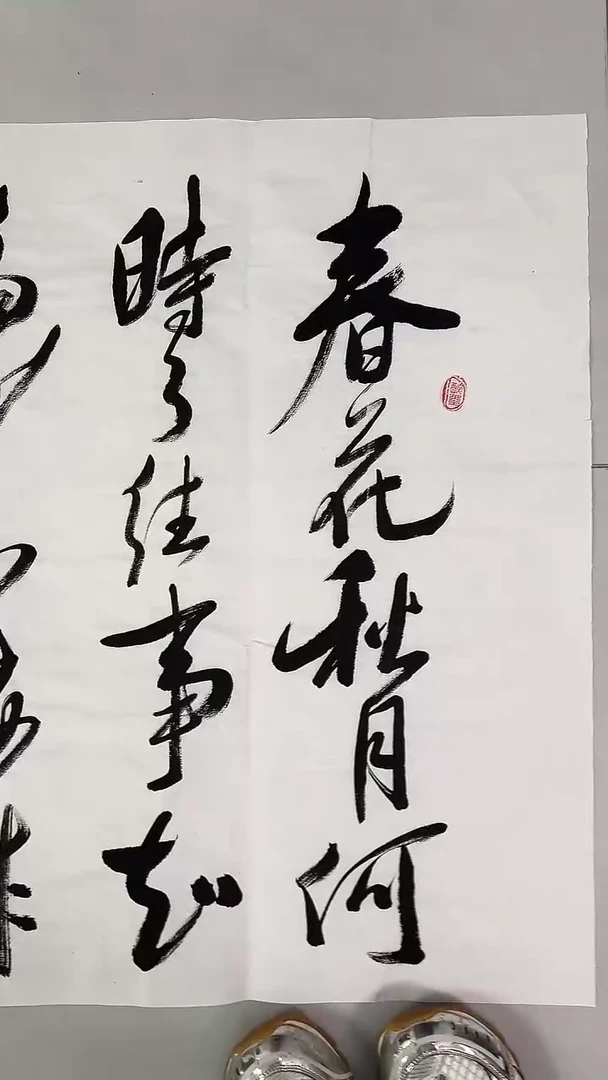 春花秋月何
時了往事知